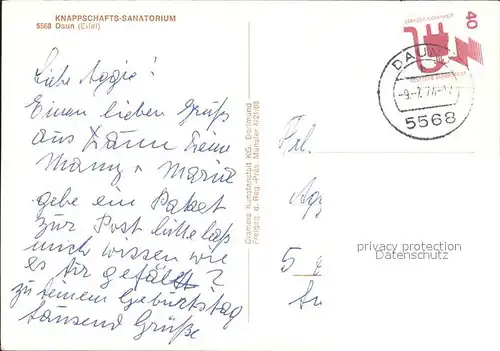 KNAPPSCHAFTS-SANATORIUM
5568 Daun (Eifel)
Liebe Aggie!
Einen lieben Gruß
aus Daun Deine
Mamy + Marie
gebe ein Paket
zur Post bitte laß
mich wissen wie
es Dir gefällt?
zu Deinem Geburtstag
tausend Grüße
Cramers Kunstanstalt KG. Dortmund
Freigeg. d. Reg.-Präs. Münster
40
DAUN
-9.-7.74-17
5568
Frl.
Agg
5
privacy protection
Datenschutz